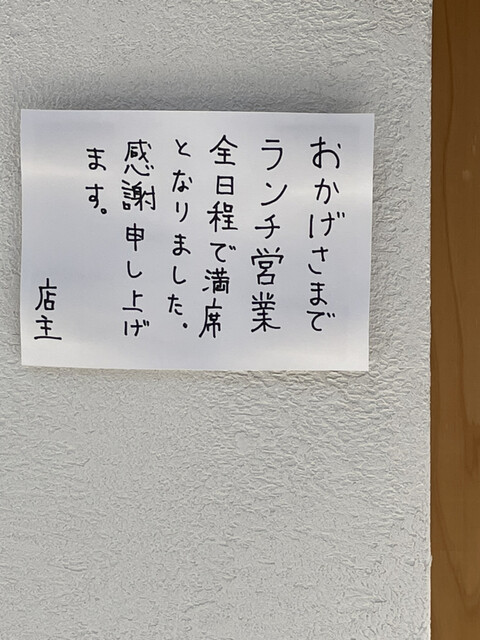 おかげさまで
ランチ営業
全日程で満席
となりました。
感謝申し上げ
ます。
店主